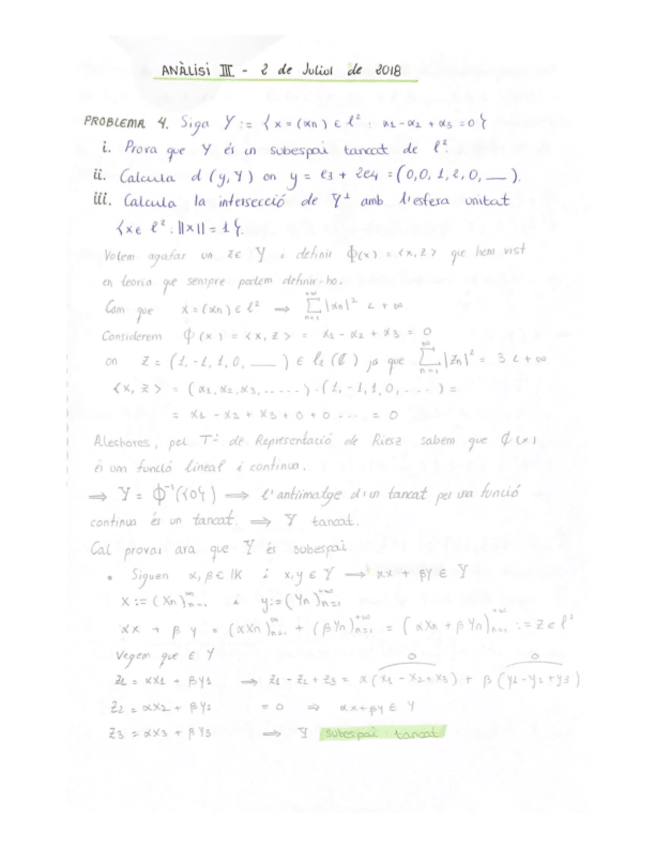 ANÀLISI III - 2 de Juliol de 2018
PROBLEMA 4. Siga Y := { x = (xn) ∈ l² : x1 - x2 + x3 = 0 }
i. Prova que Y és un subespai tancat de l².
ii. Calcula d(y, Y) on y = e3 + 2e4 = (0,0,1,2,0, __ ).
iii. Calcula la intersecció de Y⊥ amb l'esfera unitat
{x ∈ l² : ||x|| = 1}.
Volem agafar un z ∈ Y i definir Φ(x) = <x, z> que hem vist
en teoria que sempre podem definir-ho.
Com que x = (xn) ∈ l² ⟹ ∑_{n=1}^{+∞} |xn|² < +∞
Considerem Φ(x) = <x, z> = x1 - x2 + x3 = 0
on z = (1, -1, 1, 0, ___ ) ∈ l2 ja que ∑_{n=1}^{∞} |zn|² = 3 < +∞
<x, z> = (x1, x2, x3, .....) · (1, -1, 1, 0, ... ) =
= x1 - x2 + x3 + 0 + 0 ... = 0
Aleshores, pel T- de Representació de Riesz sabem que Φ(x)
és una funció lineal i contínua.
⟹ Y = Φ⁻¹({0}) ⟹ l'antiimatge d'un tancat per una funció
contínua és un tancat ⟹ Y tancat.
Cal provar ara que Y és subespai
• Siguen α, β ∈ IK i x, y ∈ Y ⟶ αx + βy ∈ Y
x := (xn)_{n=1}^{∞} i y := (yn)_{n=1}^{+∞}
αx + βy = (αxn)_{n=1}^{∞} + (βyn)_{n=1}^{+∞} = (αxn + βyn)_{n=1}^{+∞} := z ∈ l²
Vegem que ∈ Y 0 0
z1 = αx1 + βy1 ⟹ z1 - z2 + z3 = α(x1 - x2 + x3) + β(y1 - y2 + y3)
z2 = αx2 + βy2 = 0 ⟹ αx + βy ∈ Y
z3 = αx3 + βy3 ⟹ Y subespai tancat